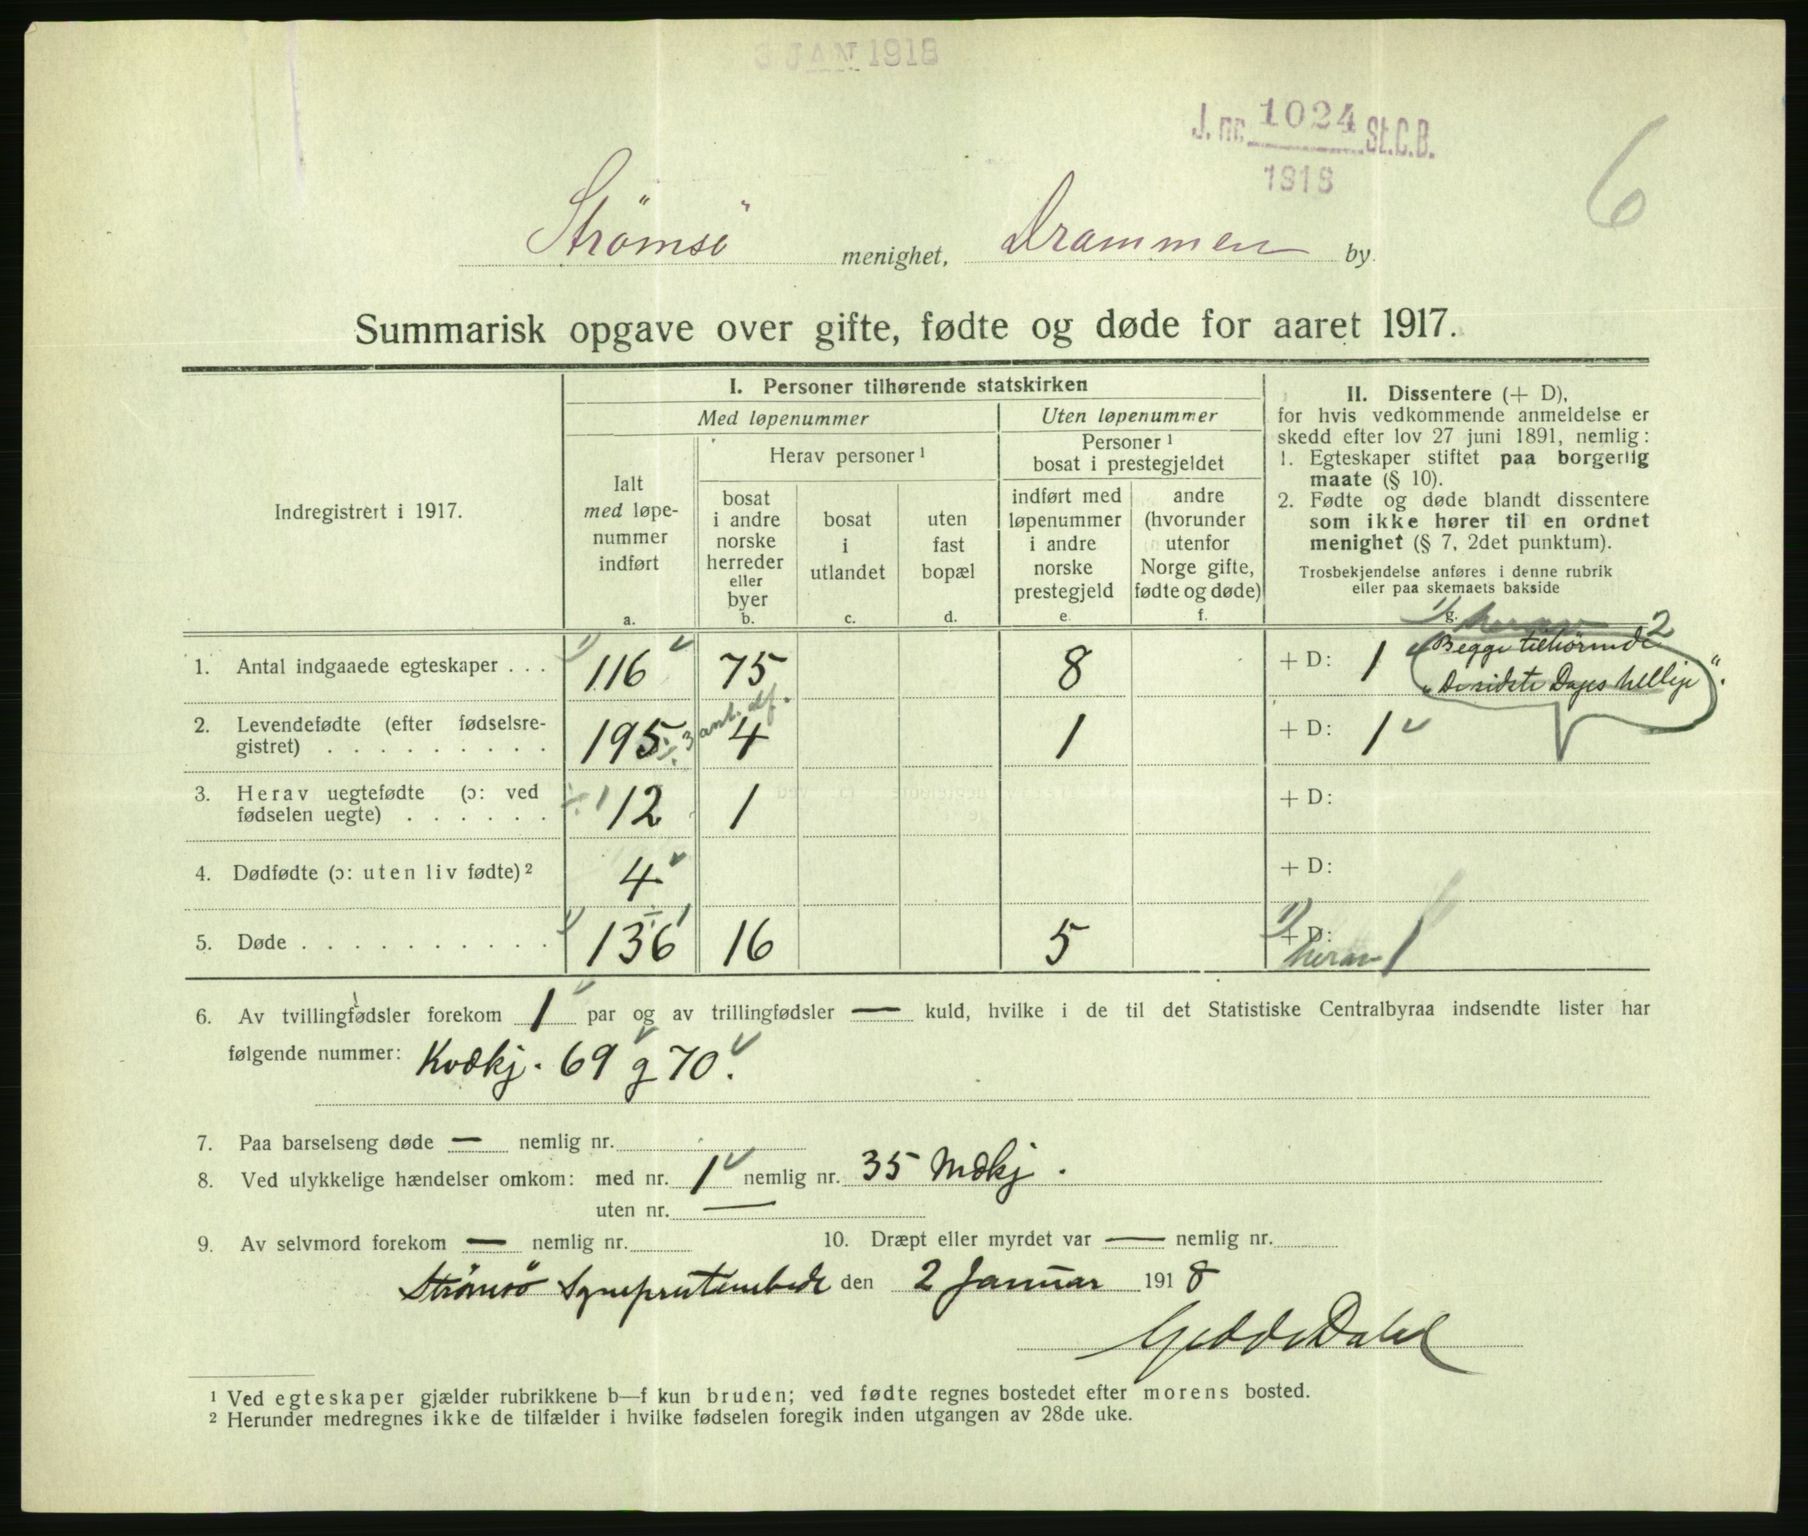 3 JAN 1918
J. nr. 1024 St.C.B.
1918
6
Strømsø menighet, Drammen by.
Summarisk opgave over gifte, fødte og døde for aaret 1917.
Indregistrert i 1917.
I. Personer tilhørende statskirken
Med løpenummer
Uten løpenummer
Ialt
med løpe-
nummer
indført
a.
Herav personer ¹
bosat
i andre
norske
herreder
eller
byer
b.
bosat
i
utlandet
c.
uten
fast
bopæl
d.
Personer ¹
bosat i prestegjeldet
indført med
løpenummer
i andre
norske
prestegjeld
e.
andre
(hvorunder
utenfor
Norge gifte,
fødte og døde)
f.
II. Dissentere (+ D),
for hvis vedkommende anmeldelse er
skedd efter lov 27 juni 1891, nemlig:
1. Egteskaper stiftet paa borgerlig
maate (§ 10).
2. Fødte og døde blandt dissentere
som ikke hører til en ordnet
menighet (§ 7, 2det punktum).
Trosbekjendelse anføres i denne rubrik
eller paa skemaets bakside
g.
1. Antal indgaaede egteskaper . . . 116 75 8 + D: 1 Begge tilhørende
"De sidste Dages hellige".
2. Levendefødte (efter fødselsre-
gistret) . . . . . . . . . . 195 ÷ 3 ant. df. 4 1 + D: 1
3. Herav uegtefødte (ɔ: ved
fødselen uegte) . . . . . . ÷ 1 12 1 + D:
4. Dødfødte (ɔ: uten liv fødte) ² 4 + D:
5. Døde . . . . . . . . . . . 136 ÷ 1 16 5 + D: 1
herav
6. Av tvillingfødsler forekom 1 par og av trillingfødsler — kuld, hvilke i de til det Statistiske Centralbyraa indsendte lister har
følgende nummer: Kvdkj. 69 g 70.
7. Paa barselseng døde — nemlig nr.
8. Ved ulykkelige hændelser omkom: med nr. 1 nemlig nr. 35 Mdkj.
uten nr. —
9. Av selvmord forekom — nemlig nr. 10. Dræpt eller myrdet var — nemlig nr.
Strømsø Sogneprestembede den 2 Januar 1918
Gedde Dahl
¹ Ved egteskaper gjælder rubrikkene b—f kun bruden; ved fødte regnes bostedet efter morens bosted.
² Herunder medregnes ikke de tilfælder i hvilke fødselen foregik inden utgangen av 28de uke.